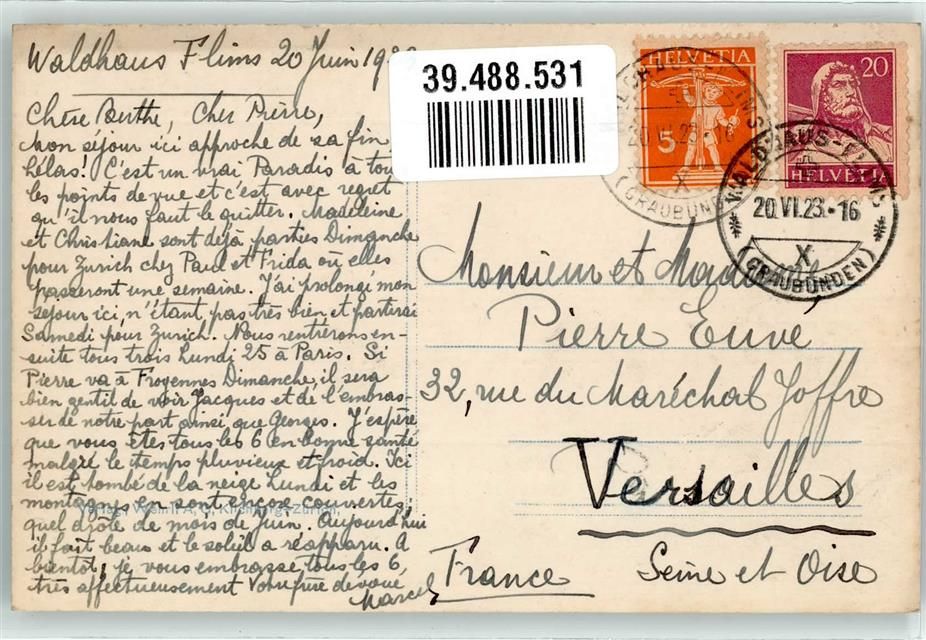 Waldhaus Flims 20 Juin 19
39.488.531
Chère Berthe, Cher Pierre,
Mon séjour ici approche de sa fin
hélas! C'est un vrai Paradis à tous
les points de vue et c'est avec regret
qu'il nous faut le quitter. Madeleine
et Christiane sont déjà parties Dimanche
pour Zurich chez Paul et Frida où elles
passeront une semaine. J'ai prolongé mon
séjour ici, n'étant pas très bien et partirai
Samedi pour Zurich. Nous rentrerons en-
suite tous trois Lundi 25 à Paris. Si
Pierre va à Froyennes Dimanche, il sera
bien gentil de voir Jacques et de l'embras-
ser de notre part ainsi que Georges. J'espère
que vous êtes tous les 6 en bonne santé
malgré le temps pluvieux et froid. Ici
il est tombé de la neige Lundi et les
montagnes en sont encore couvertes;
quel drôle de mois de Juin. Aujourd'hui
il fait beau et le soleil a réapparu. A
bientôt, je vous embrasse tous les 6,
très affectueusement Votre frère dévoué
Marcel
HELVETIA
5
20
HELVETIA
(GRAUBÜNDEN)
WALDHAUS-FLIMS
20.VI.23.-16
X
(GRAUBÜNDEN)
Monsieur et Madame
Pierre Euvé,
32, rue du Maréchal Joffre
Versailles
France
Seine et Oise